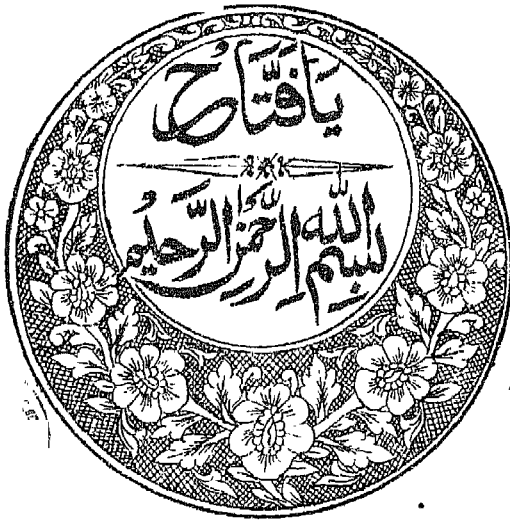 يَا فَتَّاحُ
بِسْمِ اللهِ الرَّحْمٰنِ الرَّحِيْمِ